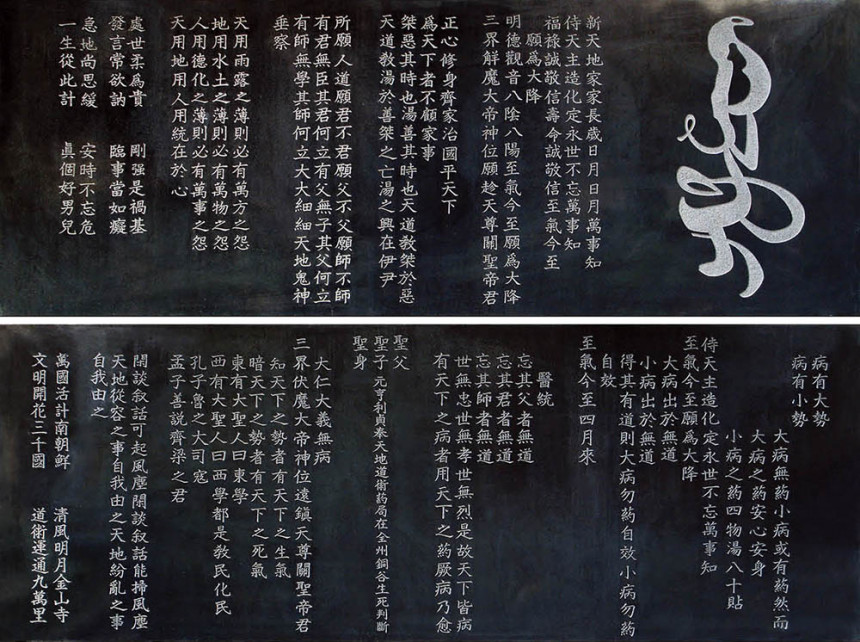 新天地家家長歲日月日月萬事知
侍天主造化定永世不忘萬事知
福祿誠敬信壽命誠敬信至氣今至
願爲大降
明德觀音八陰八陽至氣今至願爲大降
三界解魔大帝神位願趁天尊關聖帝君
正心修身齊家治國平天下
爲天下者不顧家事
桀惡其時也湯善其時也天道敎桀於惡
天道敎湯於善桀之亡湯之興在伊尹
所願人道願君不君願父不父願師不師
有君無臣其君何立有父無子其父何立
有師無學其師何立大大細細天地鬼神
垂察
天用雨露之薄則必有萬方之怨
地用水土之薄則必有萬物之怨
人用德化之薄則必有萬事之怨
天用地用人用統在於心
處世柔爲貴 剛强是禍基
發言常欲訥 臨事當如癡
急地尙思緩 安時不忘危
一生從此計 眞個好男兒
病有大勢
病有小勢
大病無藥小病或有藥然而
大病之藥安心安身
小病之藥四物湯八十貼
侍天主造化定永世不忘萬事知
至氣今至願爲大降
大病出於無道
小病出於無道
得其有道則大病勿藥自效小病勿藥
自效
至氣今至四月來
醫統
忘其父者無道
忘其君者無道
忘其師者無道
世無忠世無孝世無烈是故天下皆病
有天下之病者用天下之藥厥病乃愈
聖父
聖子 元亨利貞奉天地道術藥局在全州銅谷生死判斷
聖身
大仁大義無病
三界伏魔大帝神位遠鎭天尊關聖帝君
知天下之勢者有天下之生氣
暗天下之勢者有天下之死氣
東有大聖人曰東學
西有大聖人曰西學都是敎民化民
孔子魯之大司寇
孟子善說齊梁之君
閑談叙話可起風塵閑談叙話能掃風塵
天地從容之事自我由之天地紛亂之事
自我由之
萬國活計南朝鮮 清風明月金山寺
文明開花三千國 道術運通九萬里